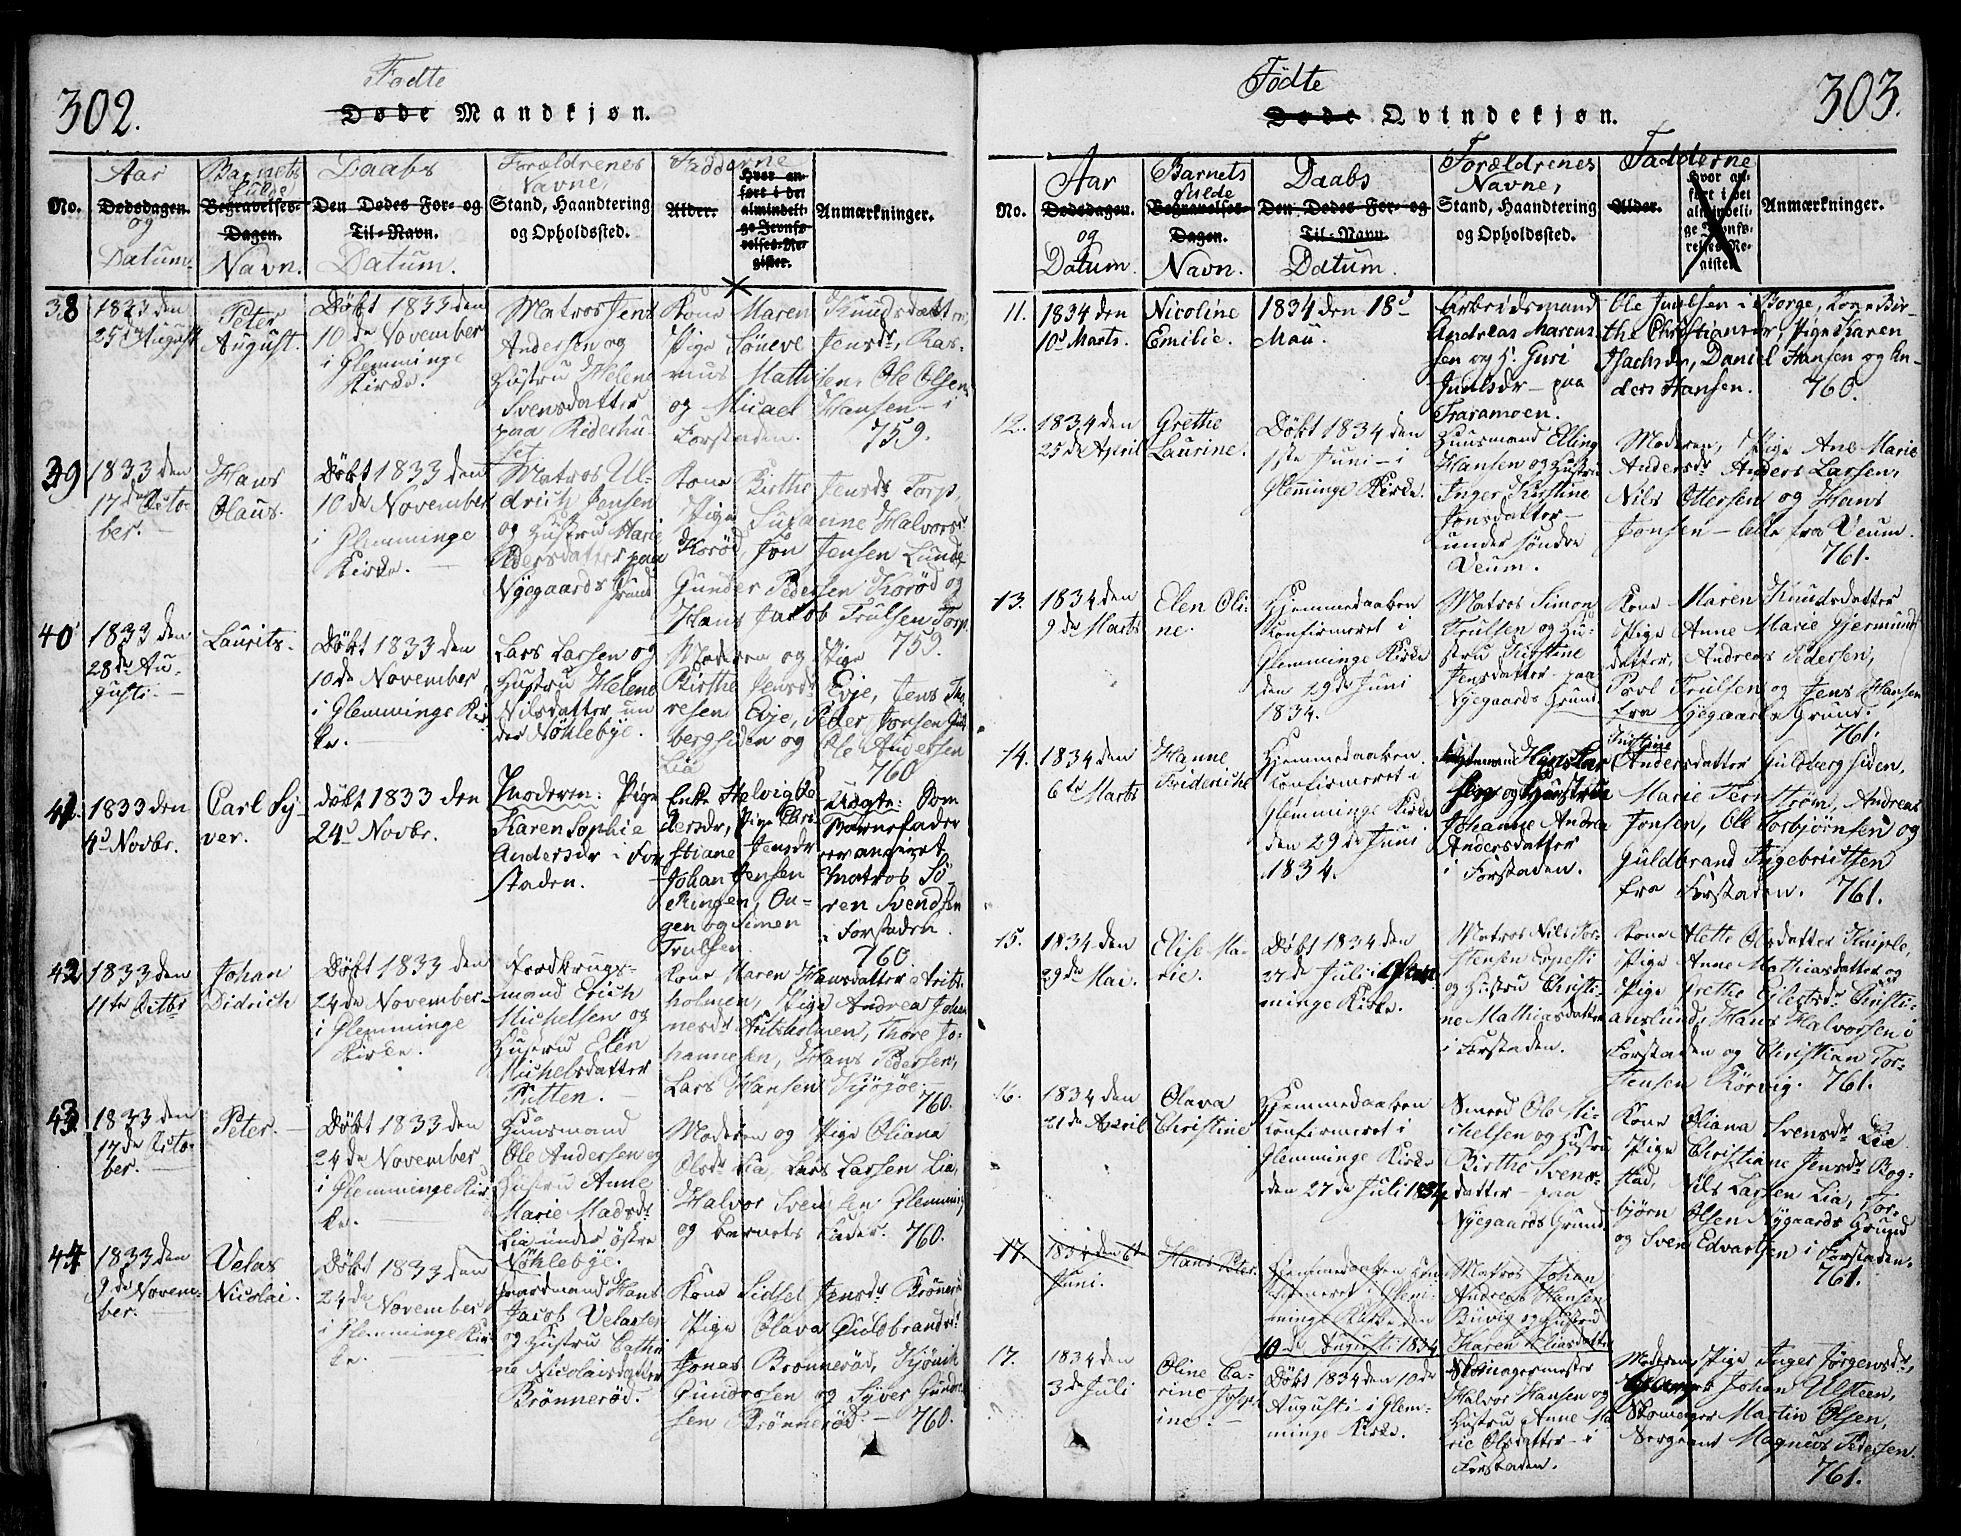 302.
Fødte
Døde Mandkjøn.
No.
Aar
Dødsdagen.
og
Datum.
Barnets
fulde
Begravelses-
Dagen.
Navn.
Daabs
Den Dødes For- og
Til-Navn.
Datum.
Forældrenes
Navne,
Stand, Haandtering
og Opholdssted.
Fadderne
Alder.
Hvor an-
ført i det
almindeli-
ge Jevnfø-
relses-Re-
gister.
Anmærkninger.
38
1833 den
25 August
Peter
August.
Døbt 1833 den
10de November
i Glemminge
Kirke.
Matros Jens
Andersen og
Hustru Helene
Svensdatter
paa Rideshu-
set
Kone Maren Knudsdatter
Pige Jensdr, Ras-
mus Mathisen, Ole Olsen
og Micael Hansen i
Forstaden. 759.
39
1833 den
17de Octo-
ber.
Hans
Olaus.
Døbt 1833 den
10de November
i Glemminge
Kirke.
Matros Ul-
drich Jensen
og Hustru Marie
Pedersdatter paa
Nygaards Grund
Kone Birthe Jensdr Torp,
Pige Susanne Halvorsdr
Korød, Jon Jensen Lunde
Gunder Pedersen Korød og
Hans Jakob Trulsen Torp.
759.
40
1833 den
28de Au-
gusti.
Laurits.
Døbt 1833 den
10de November
i Glemminge Kir-
ke.
Lars Larsen og
Hustru Helene
Nilsdatter un-
der Nøklebye.
Moderen og Pige
Birthe Jensdr Evje, Jens
resen Evje, Peder Jensen Guld-
bergsiden og Ole Andersen
Lia
760
41.
1833 den
4d Novbr.
Carl Sy-
ver.
døbt 1833 den
24d Novbr.
Moderen: Pige
Karen Sophie
Andersdr i For-
staden.
Enke Helvig Pe-
dersdr, Pige Chri-
stiane Jensdr
Johan Jensen
Ringen, Au-
gen og Simen
Trulsen.
Uægte: Som
Barnefader
er angivet
Matros Sö-
ren Svendsen
i Forstaden.
760
42
1833 den
11te Octbr
Johan
Didrich
Døbt 1833 den
24de November
i Glemminge
Kirke.
mand Erich
Michelsen og
Hustru Elen
Michelsdatter
Putten.
Kone Maren Hansdatter
holmen, Pige Andrea Johan
nesdr Thore Jo-
hannesen, Hans Pedersen,
Lars Hansen Kjøgøe.
760.
43
1833 den
17de Octo-
ber.
Peter.
Døbt 1833 den
24de November
i Glemminge Kir-
ke.
Huusmand
Ole Andersen og
Hustru Anne
Marie Madsdr
Lia under östre
Nøklebye.
Moderen og Pige Oliana
Olsdr Lia, Lars Larsen Lia,
Halvor Svensen Glemming
og barnets fader. 760.
44
1833 den
9de Novem-
ber.
Velas
Nicolai.
Døbt 1833 den
24de November
i Glemminge Kir-
ke.
Gaardmand Hans
Jacob Velasen
og Hustru Cathri-
ne Nicolaisdatter
Brønnerød.
Kone Sidsel Jensdr Brönerød
Pige Olava Guldbrandsdr
Jonas Brønnerød, Kjönik
Gundersen og Syver Gunder-
sen Brønnerød. 760.
303.
Fødte
Døde Qvindekjøn.
No.
Aar
Dødsdagen.
og
Datum.
Barnets
fulde
Begravelses-
Dagen.
Navn.
Daabs
Den Dødes For- og
Til-Navn.
Datum.
Forældrenes
Navne,
Stand, Haandtering
og Opholdssted.
Fadderne
Alder.
Hvor an-
ført i det
almindeli-
ge Jevnfø-
relses-Re-
gister.
Anmærkninger.
11.
1834 den
10d Marts.
Nicoline
Emilie.
1834 den 18d
Mai.
Arbeidsmand
Andreas Marcus-
sen og H. Guri
Juulsdr paa
Traramoen.
Ole Jacobsen i Borge, Kone Bir-
the Christiansdr, Pige Karen
Isachsdr, Daniel Hansen og An-
ders Hansen. 760.
12.
1834 den
25de April
Grethe
Laurine.
Døbt 1834 den
1ste Juni i
Glemminge Kirke.
Huusmand Elling
Hansen og Hustru
Inger Kirstine
Jensdatter
under søndre
Veum.
Moderen, Pige Ane Marie
Andersdr Anders Larsen,
Nils Ottersen og Hans
Jensen alle fra Veum.
761.
13.
1834 den
9de Marts
Elen Oli-
ne.
Hjemmedaaben
Konfirmeret i
Glemminge Kirke
den 29de Juni
1834.
Matros Simon
Trulsen og Hu-
stru Kirstine
Jensdatter paa
Nygaards Grund
Kone Maren Knudsdatter
Pige Anne Marie Gjermunds
datter, Andreas Pedersen,
Poul Trulsen og Jens Hansen
fra Nygaards Grund.
761.
14.
1834 den
6te Marts
Hanne
Friderichs
Hjemmedaaben
Konfirmeret i
Glemminge Kirke
den 29de Juni
1834.
og Hustru
Johanne Andrea
Andersdatter
i Forstaden.
Kirstine
Andersdatter Guldbergsiden,
Marie Fernström, Andreas
Jensen, Ole Torbjörnsen og
Guldbrand Ingebrictsen
fra Forstaden. 761.
15.
1834 den
29de Mai.
Elise Ma-
rie.
Døbt 1834 den
27de Juli i Glem-
minge Kirke.
Matros Nils Tor-
stensen
og Hustru Christi-
ne Mathiasdatter
i Forstaden.
Kone Mette Olsdatter
Pige Anne Mathiasdatter og
Pige Grethe Christi-
anslund, Hans Halvorsen i
Forstaden og Christian Tor-
stensen Rörvig. 761.
16.
1834 den
21de April
Olava
Christine
Hjemmedaaben
Konfirmeret i
Glemminge Kirke
den 27de Juli 1834.
Smed Ole Mi-
chelsen og Hustru
Birthe Svens-
datter paa
Nygaards Grund.
Kone Oliana Svensdr Lia
Pige Christiane Jensdr Bog-
stad, Nils Larsen Lia, Tor-
björn Olsen Nygaards Grund
og Sven Edvartsen i Forstaden.
761.
17.
1834 den 6t
Juni.
Hans Peter.
Hjemmedaaben kon-
firmeret i Glem-
minge Kirke den
10de Augusti 1834
Matros Johan
Andreas Hansen
Buvig og Hustru
Karen Eliasdatter
17.
1834 den
3de Juli
Oline Ca-
rine Joseph-
ine.
Døbt 1834 den 10de
Augusti i Glem-
minge Kirke.
Skomagermester
Halvor Hansen og
Hustru Anne Ma-
rie Olsdatter i
Forstaden.
Moderen, Pige Inger Jörgensdr,
Johan Ulsteen,
Skomager Martin Olsen,
Sergeant Magnus Pedersen.
761.